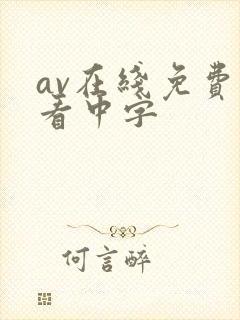 av在綫免費
看中字
何言醉